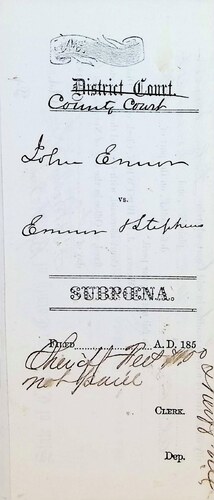 District Court.
County Court
John
vs.
& Stephens
SUBPŒNA.
FILED A. D. 185
Sheriff Fees $1.00
not paid
CLERK.
Dep.